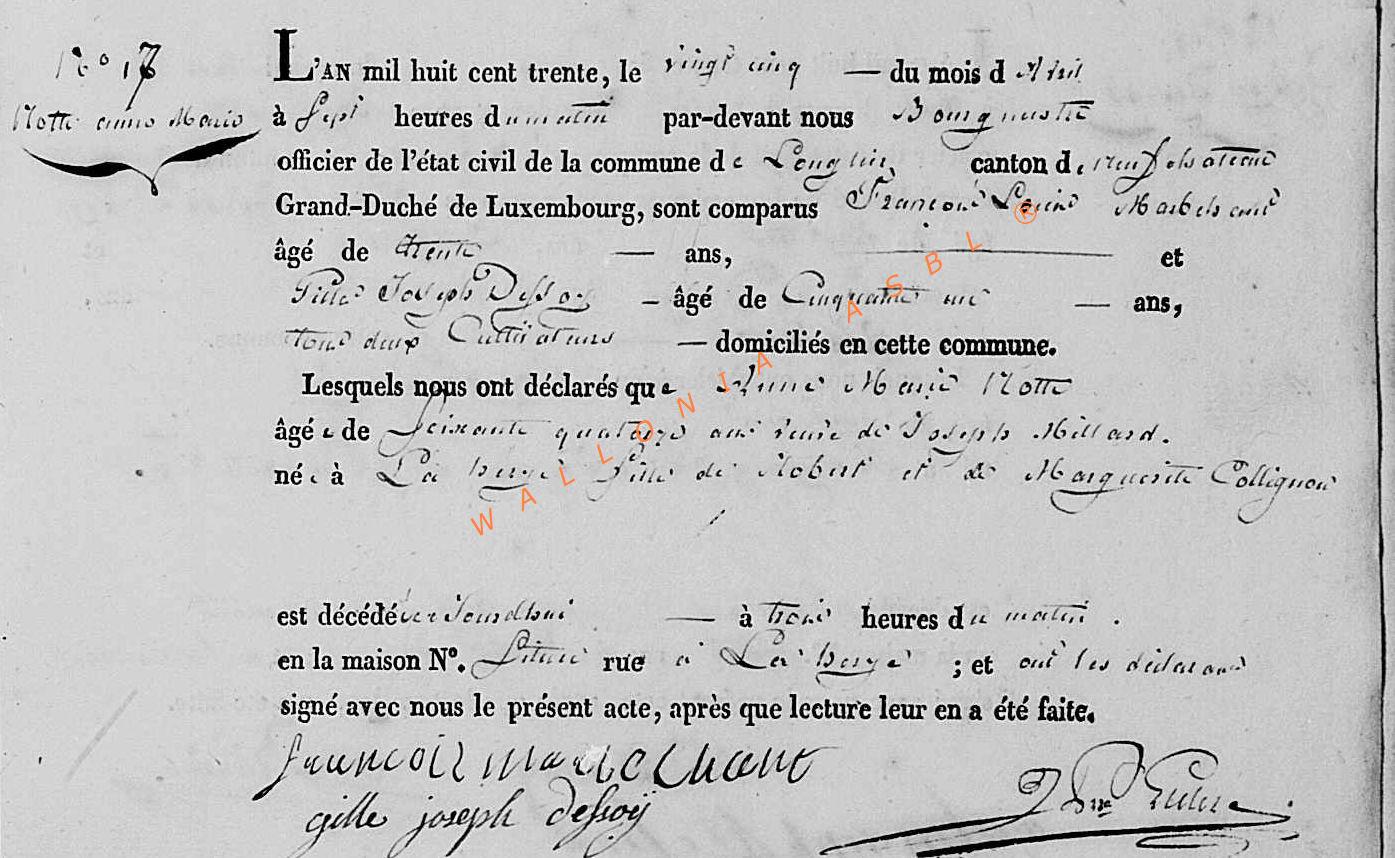 N° 17
Notte anne Marie
L'AN mil huit cent trente, le vingt cinq — du mois d Avril
à Sept heures du matin par-devant nous Bourgmestre
officier de l'état civil de la commune de Longlier canton de neufchateau
Grand-Duché de Luxembourg, sont comparus François Marbehant
âgé de trente — ans, — et
Gille Joseph Dessoy – âgé de Cinquante un — ans,
tous deux Cultivateurs — domiciliés en cette commune.
Lesquels nous ont déclarés que Anne Marie Notte
âgée de Soixante quatorze ans veuve de Joseph Millard.
née à Lahérie fille de Robert et de Marguerite Collignon
est décédée cejourdhui — à trois heures du matin .
en la maison N°. Située rue à Lahérie ; et ont les déclarans
signé avec nous le présent acte, après que lecture leur en a été faite.
françois marbechant
gille joseph dessoÿ
WALLONIA ASBL ®